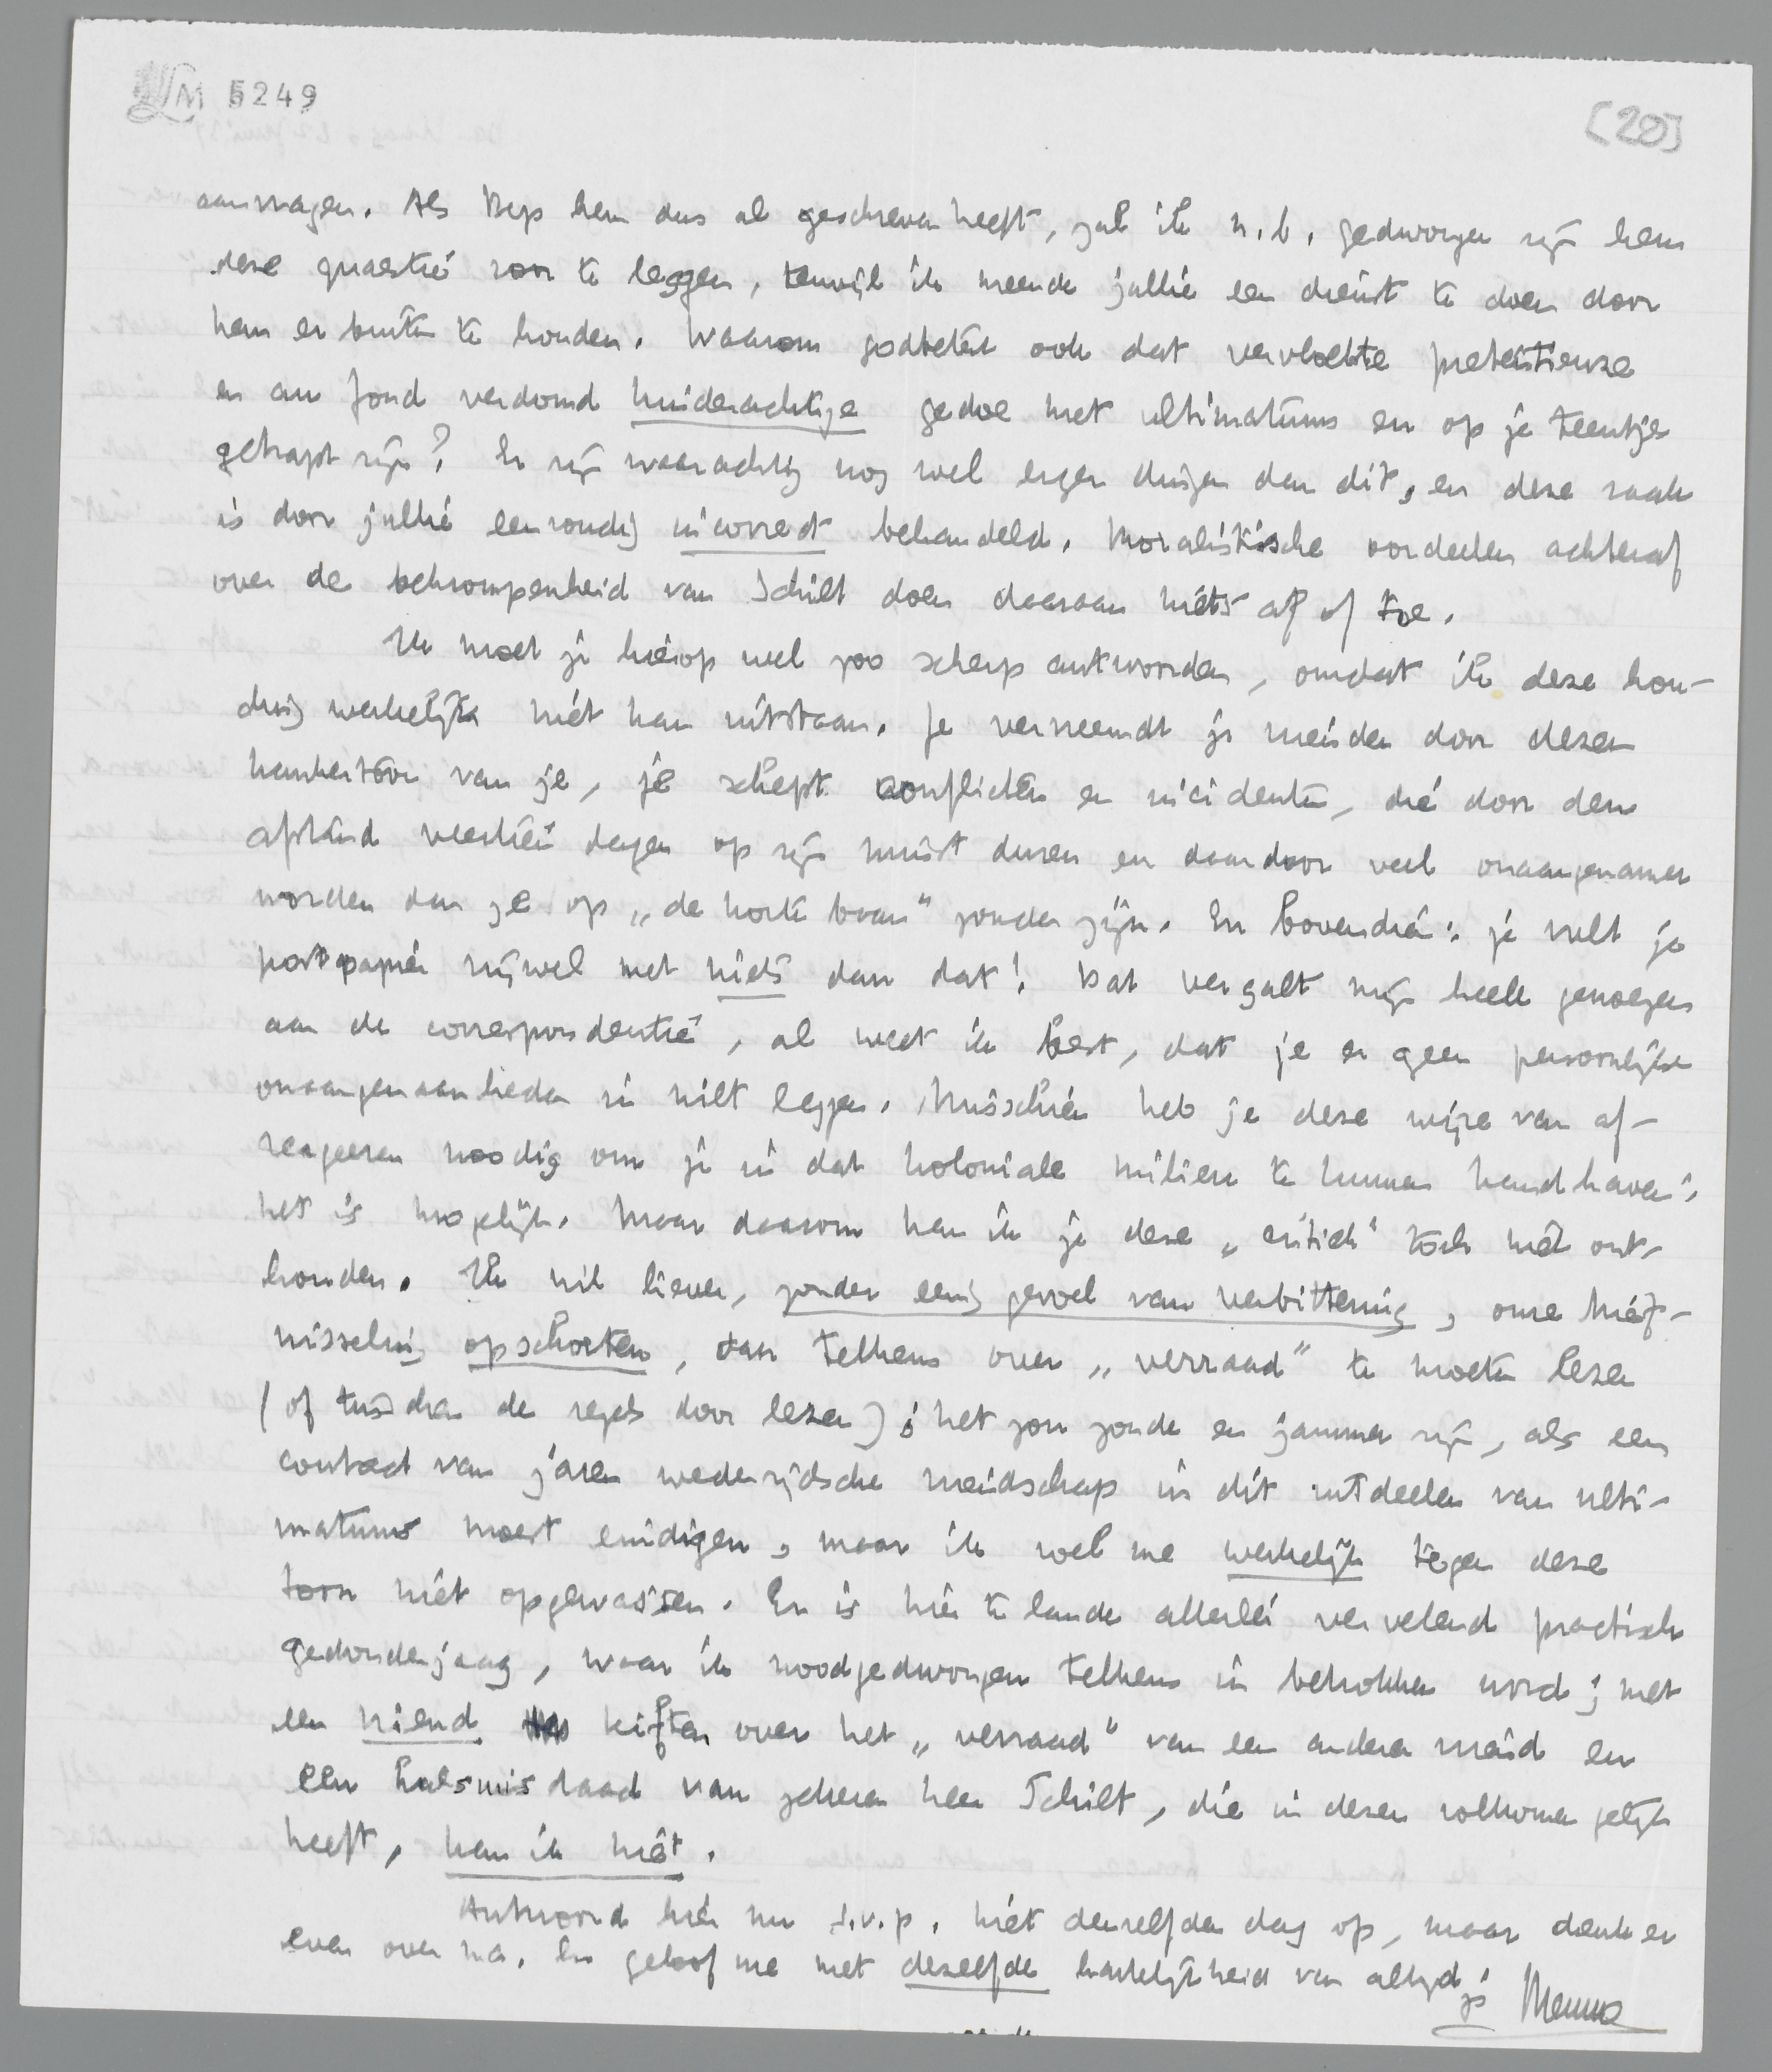 LM 5249
[20]
aanvragen. Als Bep hem dus al geschreven heeft, zal ik n.b. gedwongen zijn hem
deze quaestie voor te leggen, terwijl ik meende jullie een dienst te doen door
hem er buiten te houden. Waarom godbetert ook dat vervloekte pretentieuze
en au fond verdomd kinderachtige gedoe met ultimatums en op je teentjes
getrapt zijn? Er zijn waarachtig nog wel erger dingen dan dit, en deze zaak
is door jullie eenvoudig incorrect behandeld. Moralistische oordeelen achteraf
over de bekrompenheid van Schilt doen daaraan niets af of toe.
Ik moet je hierop wel zoo scherp antwoorden, omdat ik deze hou-
ding werkelijk niet kan uitstaan. Je vervreemdt je vrienden door dezen
kankertoon van je, je schept conflicten en incidenten, die door den
afstand veertien dagen op zijn minst duren en daardoor veel onaangenamer
worden dan ze op „de korte baan" zouden zijn. En bovendien: je vult je
postpapier vrijwel met niets dan dat! Dat vergalt mijn heele genoegen
aan de correspondentie, al weet ik best, dat je er geen persoonlijke
onaangenaamheden in wilt leggen. Misschien heb je deze wijze van af-
reageeren noodig om je in dat koloniale milieu te kunnen handhaven;
het is mogelijk. Maar daarom kan ik je deze „critiek" toch niet ont-
houden. Ik wil liever, zonder eenig gevoel van verbittering, onze brief-
wisseling opschorten, dan telkens over „verraad" te moeten lezen
(of tusschen de regels door lezen); het zou zonde en jammer zijn, als een
contact van jaren wederzijdsche vriendschap in dit uitdeelen van ulti-
matums moest eindigen, maar ik voel me werkelijk tegen deze
toon niet opgewassen. Er is hier te lande allerlei vervelend practisch
gedonderjaag, waar ik noodgedwongen telkens in betrokken word; met
een vriend kiften over het „verraad" van een andere vriend en
een halsmisdaad van zekeren heer Schilt, die in dezen volkomen gelijk
heeft, kan ik niet.
Antwoord hier nu s.v.p. niet denzelfden dag op, maar denk er
even over na. En geloof me met dezelfde hartelijkheid van altijd
je Menno